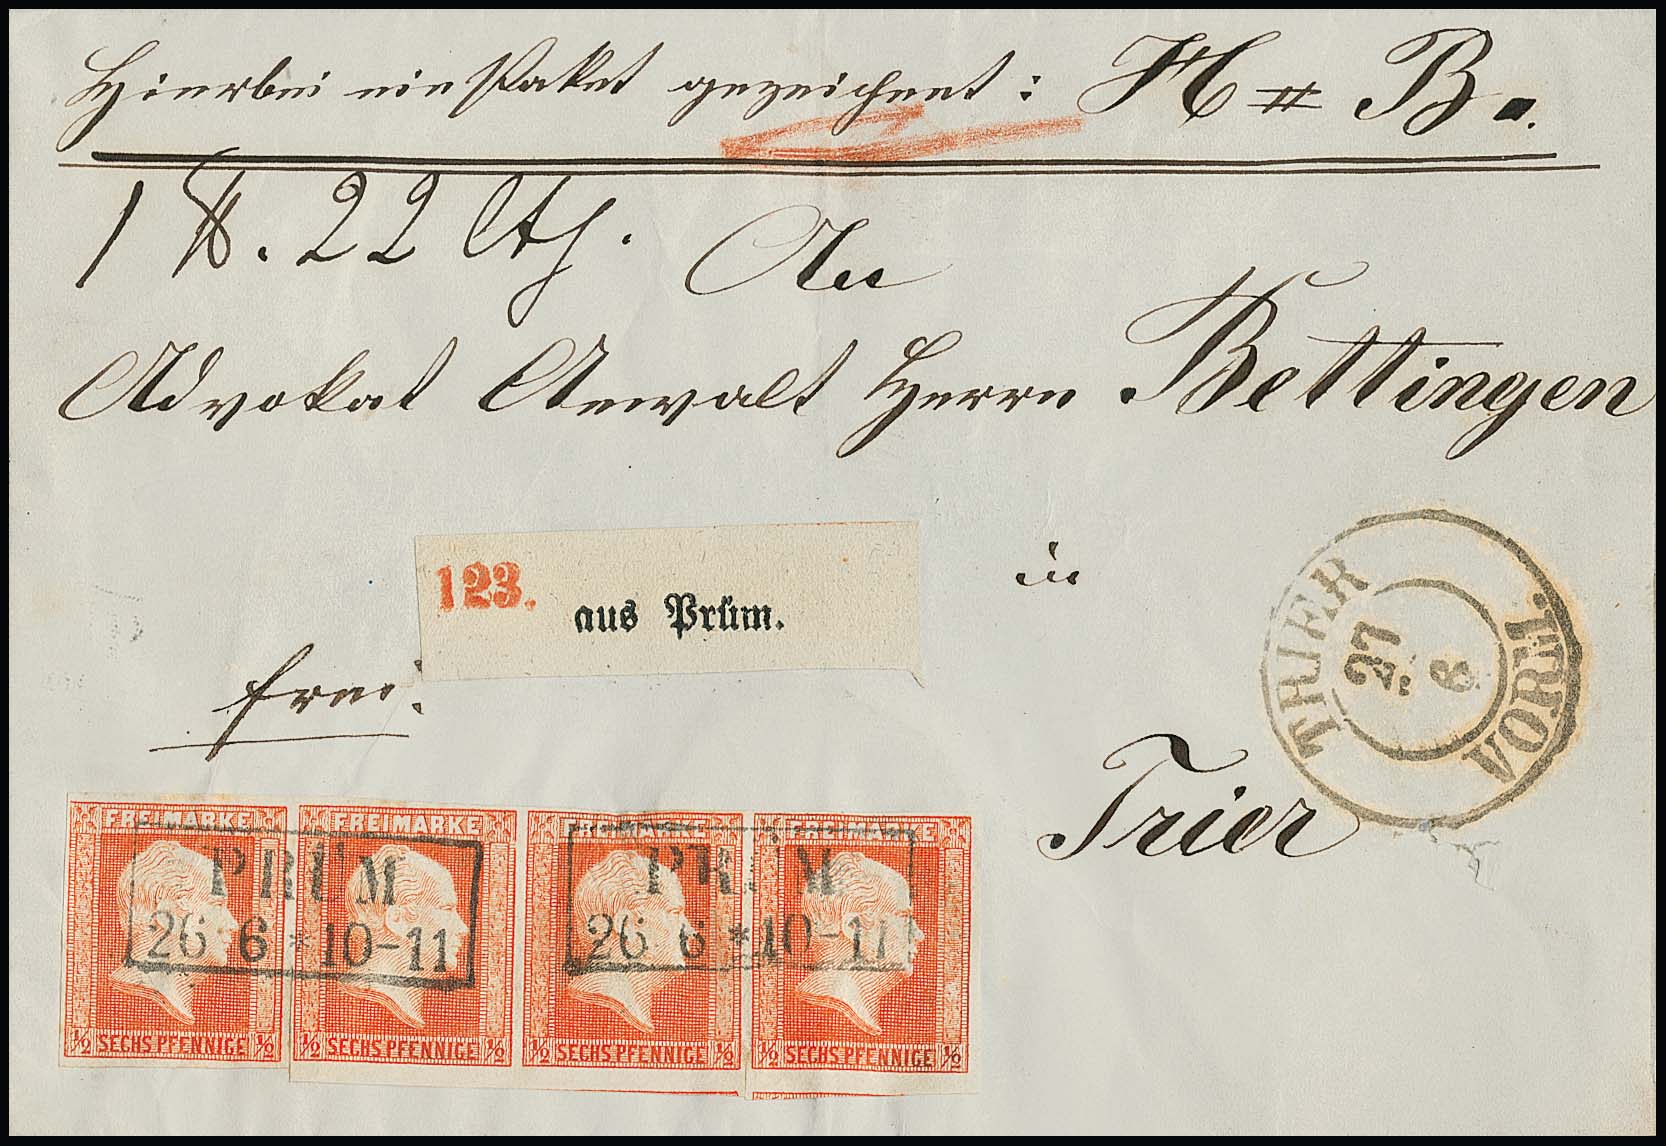 Hierbei ein Paket gezeichnet: H = B.
1 ℔. 22 Lth.
An
Advokat Anwalt Herrn Bettingen
123.
aus Prüm.
in
frei.
TRIER
27
6
VORM.
Trier
FREIMARKE FREIMARKE FREIMARKE FREIMARKE
PRÜM PRÜM
26 6 * 10-11 26 6 * 10-11
½ SECHS PFENNIGE ½ ½ SECHS PFENNIGE ½ ½ SECHS PFENNIGE ½ ½ SECHS PFENNIGE ½